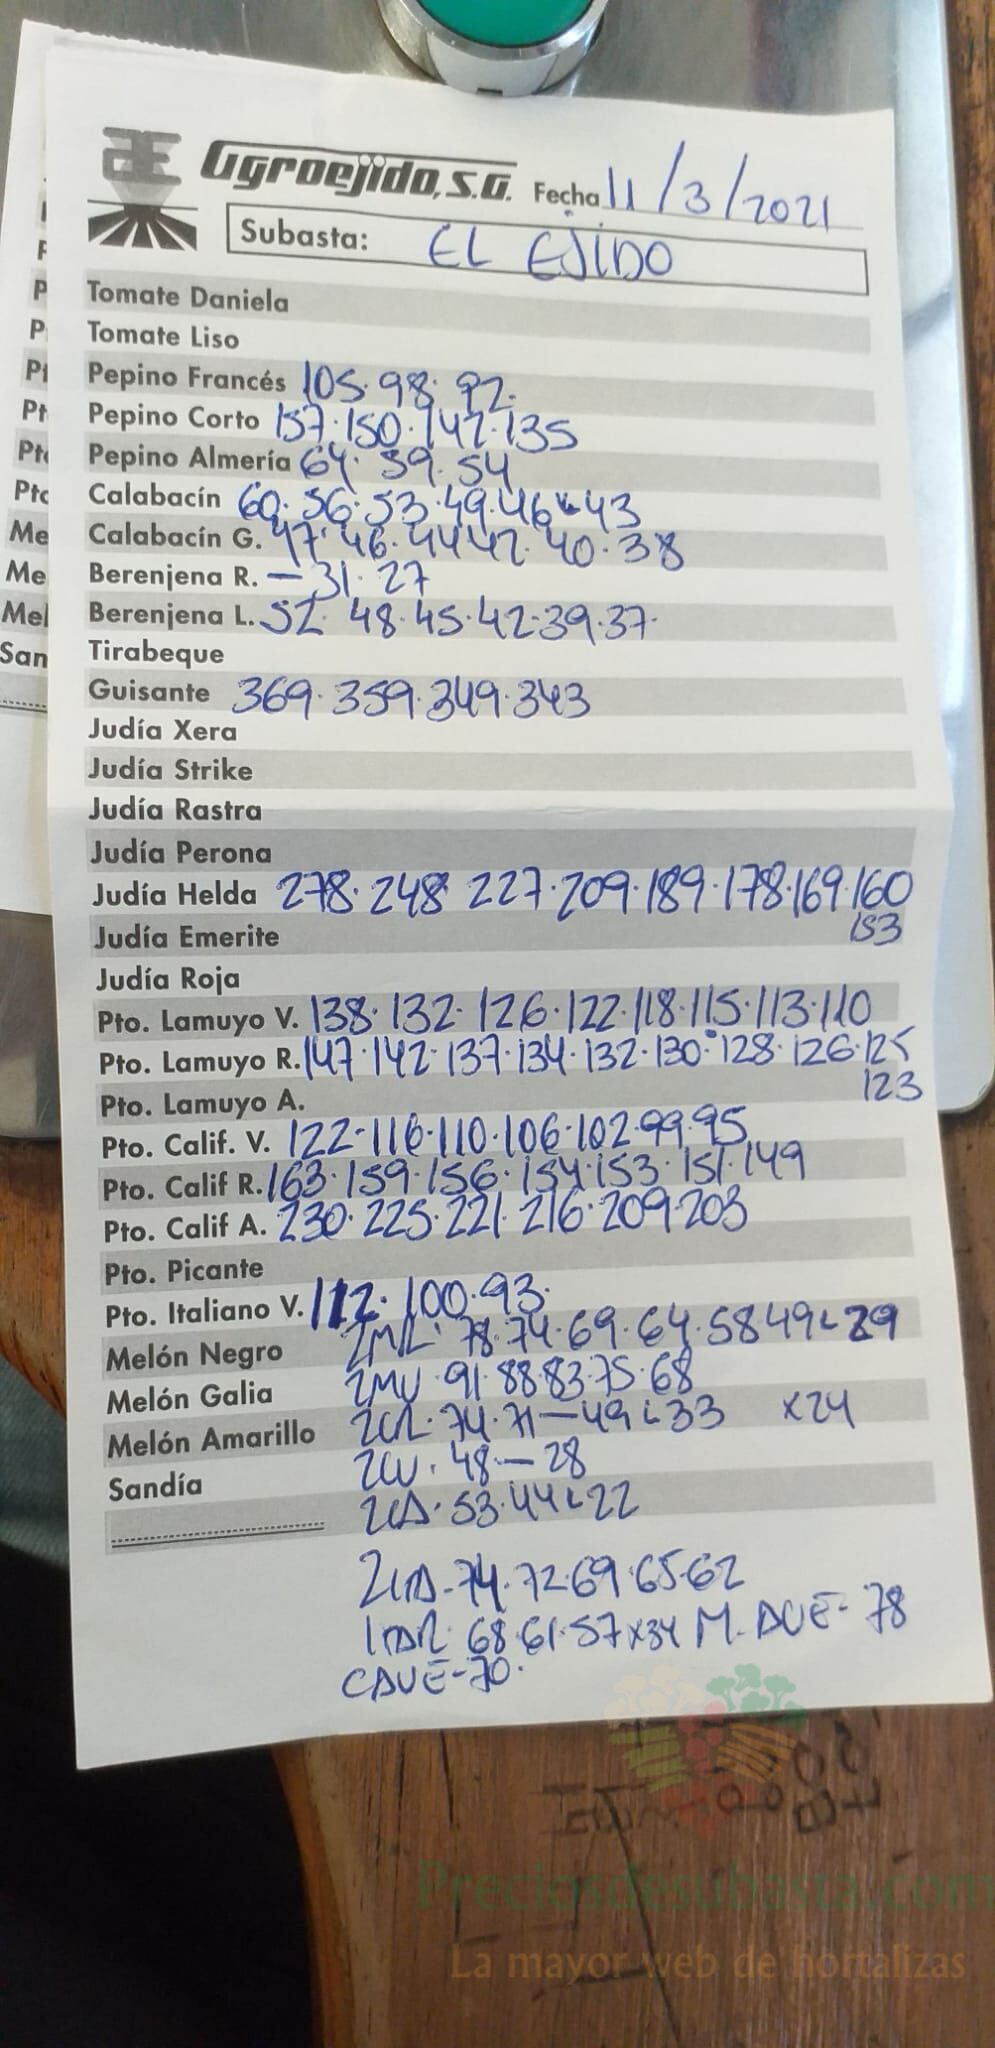 Agroejido, S.A. Fecha 11/3/2021
Subasta: EL EJIDO
Tomate Daniela
Tomate Liso
Pepino Francés 105. 98. 92.
Pepino Corto 157. 150. 142. 135
Pepino Almería 64. 59. 54
Calabacín 60. 56. 53. 49. 46 L 43
Calabacín G. 47. 46. 44 42. 40. 38
Berenjena R. — 31. 27
Berenjena L. 52. 48. 45. 42. 39. 37.
Tirabeque
Guisante 369. 359. 349. 343
Judía Xera
Judía Strike
Judía Rastra
Judía Perona
Judía Helda 278. 248. 227. 209. 189. 178. 169. 160
153
Judía Emerite
Judía Roja
Pto. Lamuyo V. 138. 132. 126. 122. 118. 115. 113. 110
Pto. Lamuyo R. 147. 142. 137. 134. 132. 130. 128. 126. 125
123
Pto. Lamuyo A.
Pto. Calif. V. 122. 116. 110. 106. 102. 99. 95
Pto. Calif R. 163. 159. 156. 154. 153. 151. 149
Pto. Calif A. 230. 225. 221. 216. 209. 203
Pto. Picante
Pto. Italiano V. 112. 100. 93.
Melón Negro 78. 74. 69. 64. 58 49 L 29
Melón Galia 91. 88. 83. 75. 68
Melón Amarillo 74. 71 — 49 L 33 x24
Sandía 48. — 28
53. 44 L 22
74. 72. 69. 65. 62
68. 61. 57 x34 M. AVE - 78
CAVE - 70.
Preciosdesubasta.com
La mayor web de hortalizas